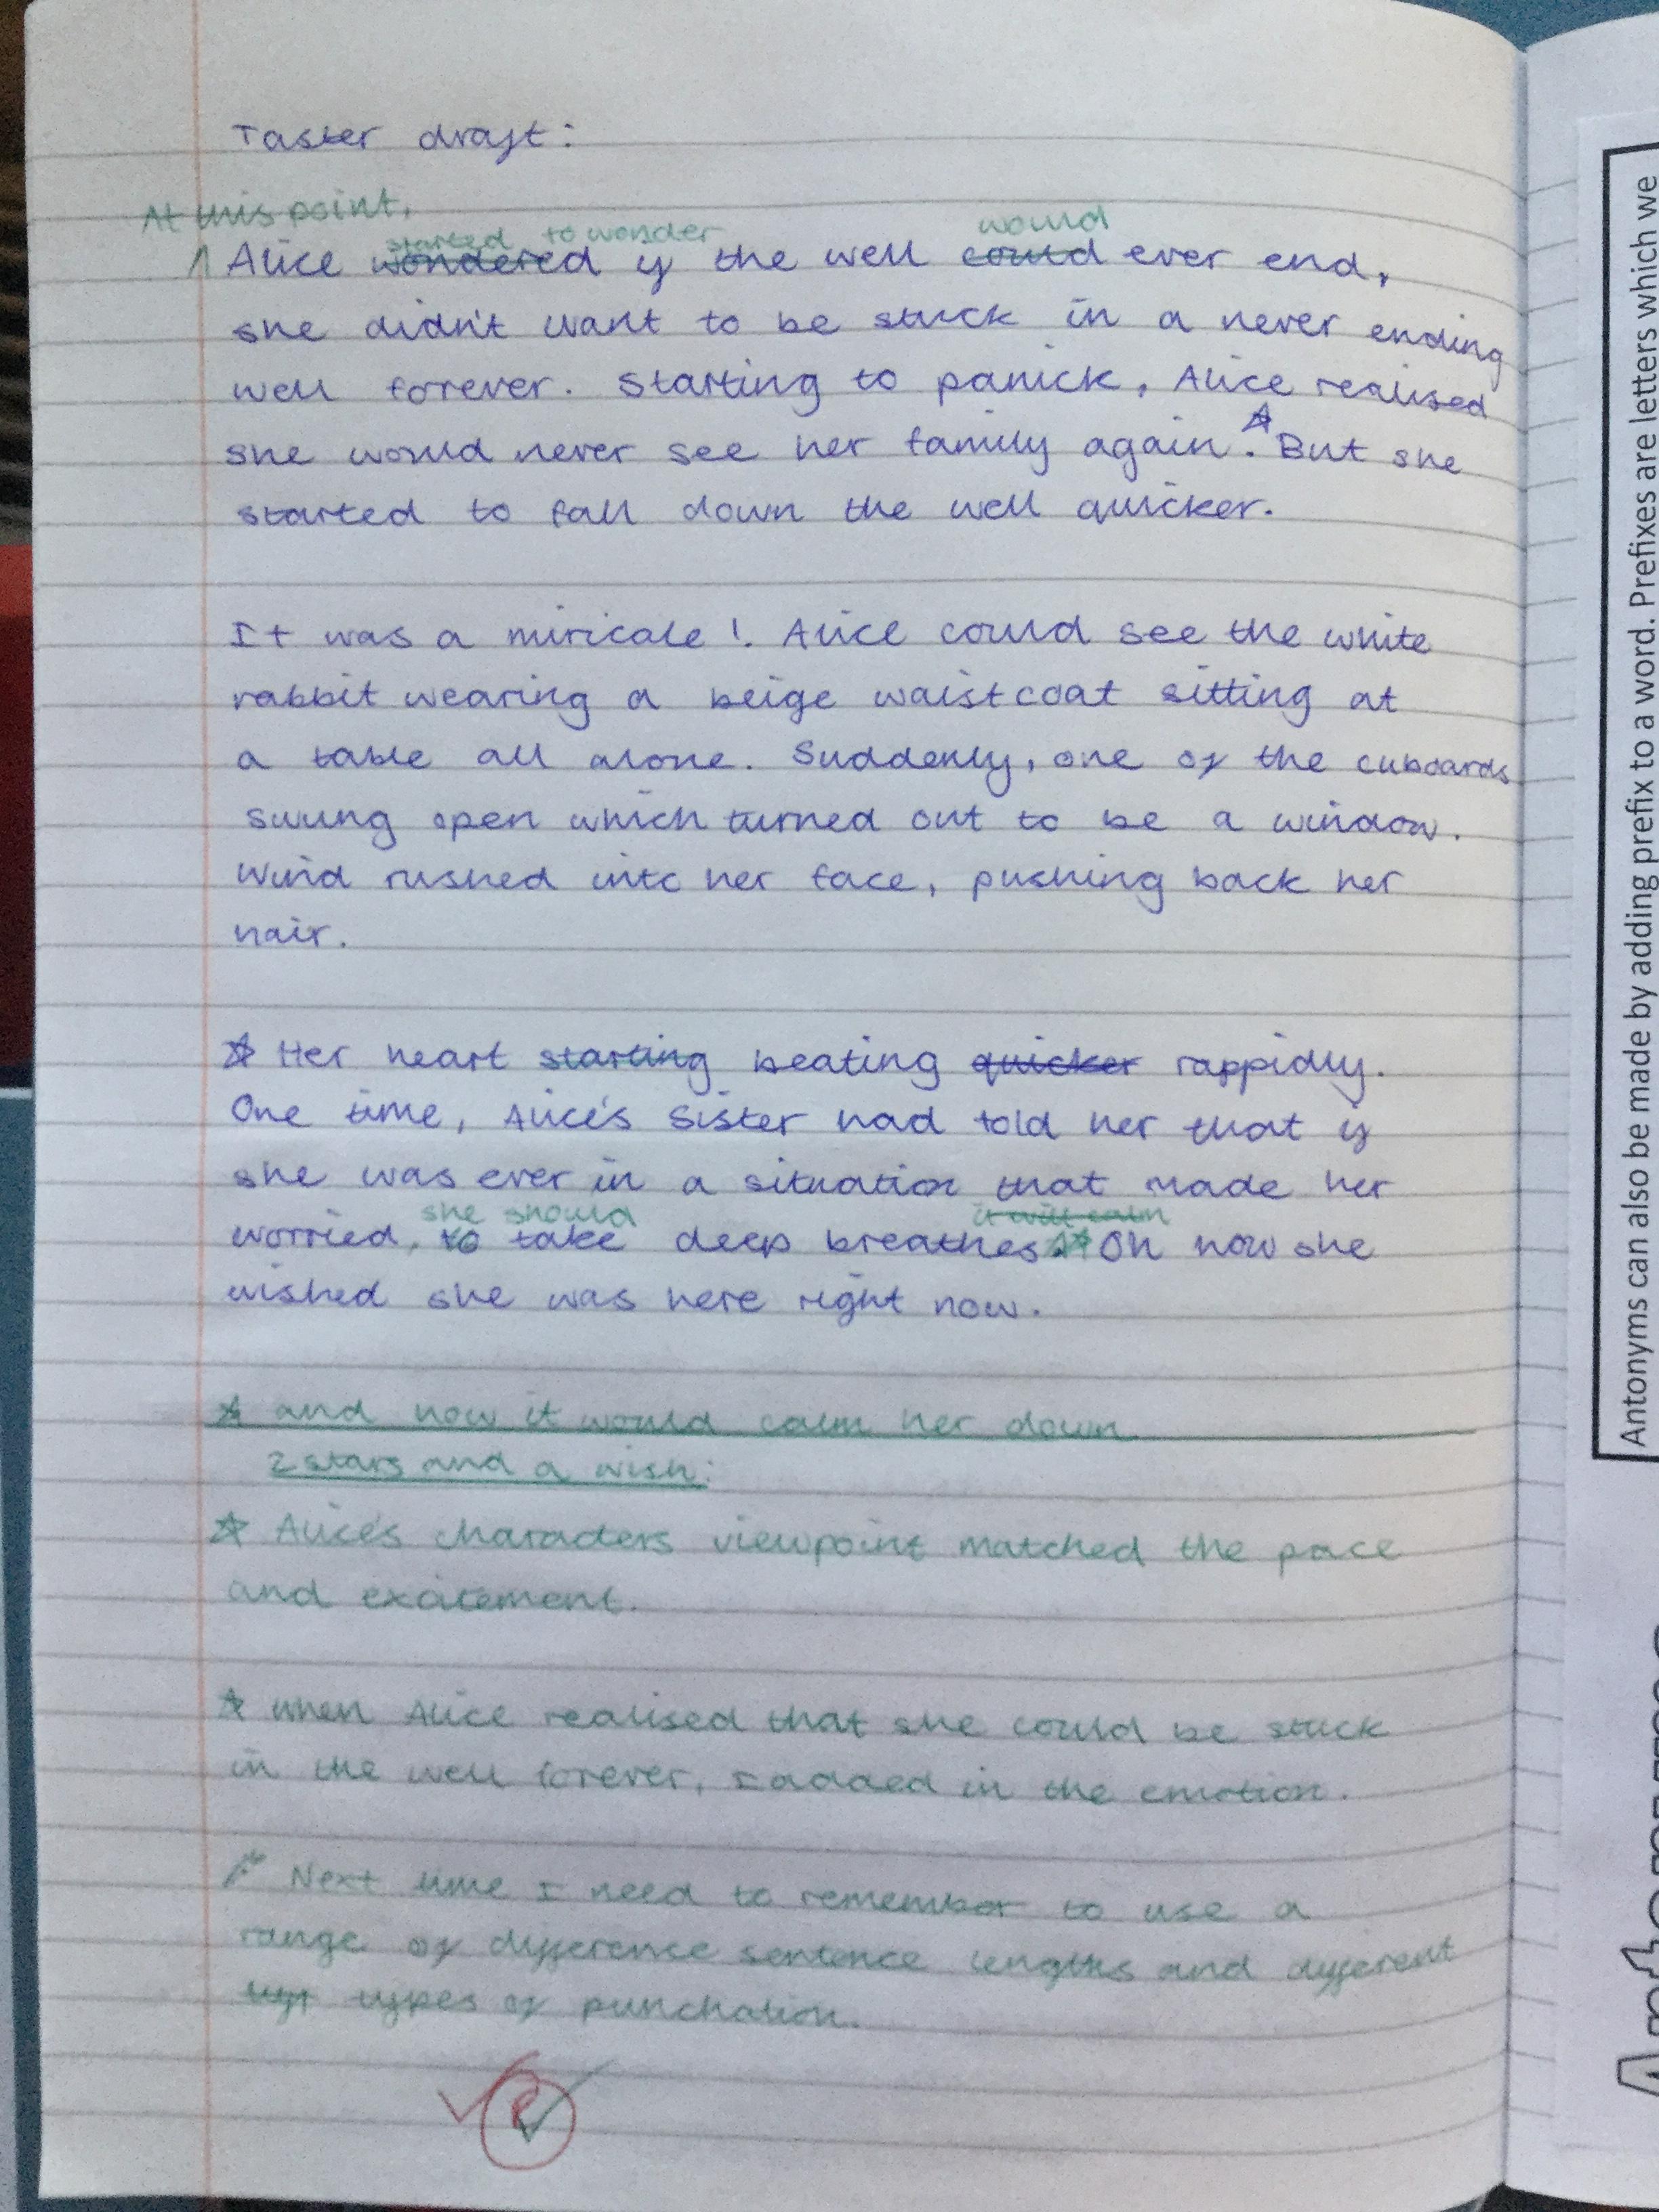 Taster draft:
At this point,
started to wonder would
^ Alice wondered if the well could ever end,
she didn't want to be stuck in a never ending
well forever. Starting to panick, Alice realised
she would never see her family again.☆ But she
started to fall down the well quicker.
It was a miricale! Alice could see the white
rabbit wearing a beige waistcoat sitting at
a table all alone. Suddenly, one of the cuboards
swung open which turned out to be a window.
Wind rushed into her face, pushing back her
hair.
☆ Her heart starting beating quicker rappidly.
One time, Alice's Sister had told her that if
she was ever in a situation that made her
she should it will calm
worried, to take deep breathes.☆ Oh how she
wished she was here right now.
☆ and how it would calm her down
2 stars and a wish:
☆ Alice's characters viewpoint matched the pace
and excitement.
☆ when Alice realised that she could be stuck
in the well forever, I added in the emotion.
Next time I need to remember to use a
range of difference sentence lengths and different
typ types of punchation.
Antonyms can also be made by adding prefix to a word. Prefixes are letters which we